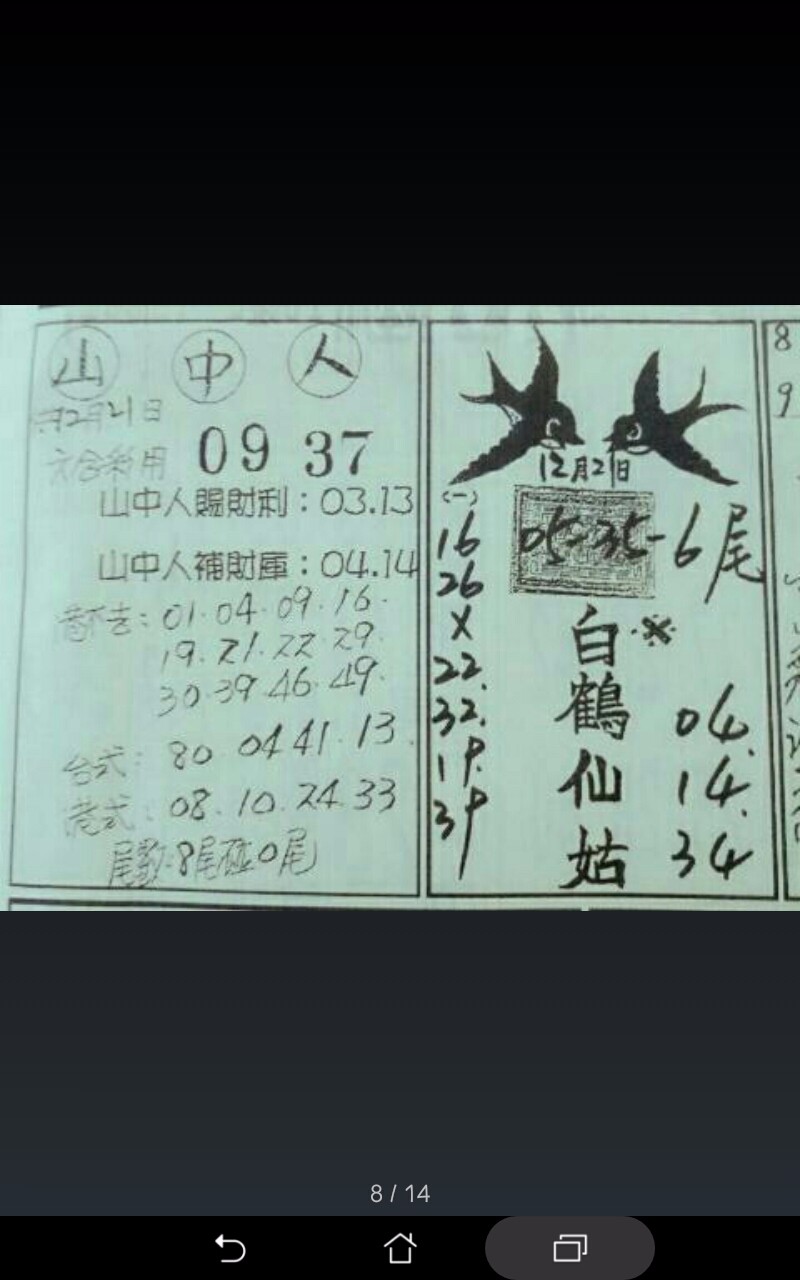 山 中 人
12月21日
六合彩用 09 37
山中人賜財利：03.13
山中人補財庫：04.14
01.04.09.16.
19.21.22.29.
30.39.46.49.
台式：80.04 41.13.
港式：08.10.24.33
尾數：8尾碰0尾
12月21日
05-35-6尾
(一)
16
26
X
22.
32.
19.
39
白鶴仙姑
※
04.
14.
34
8
9
8 / 14